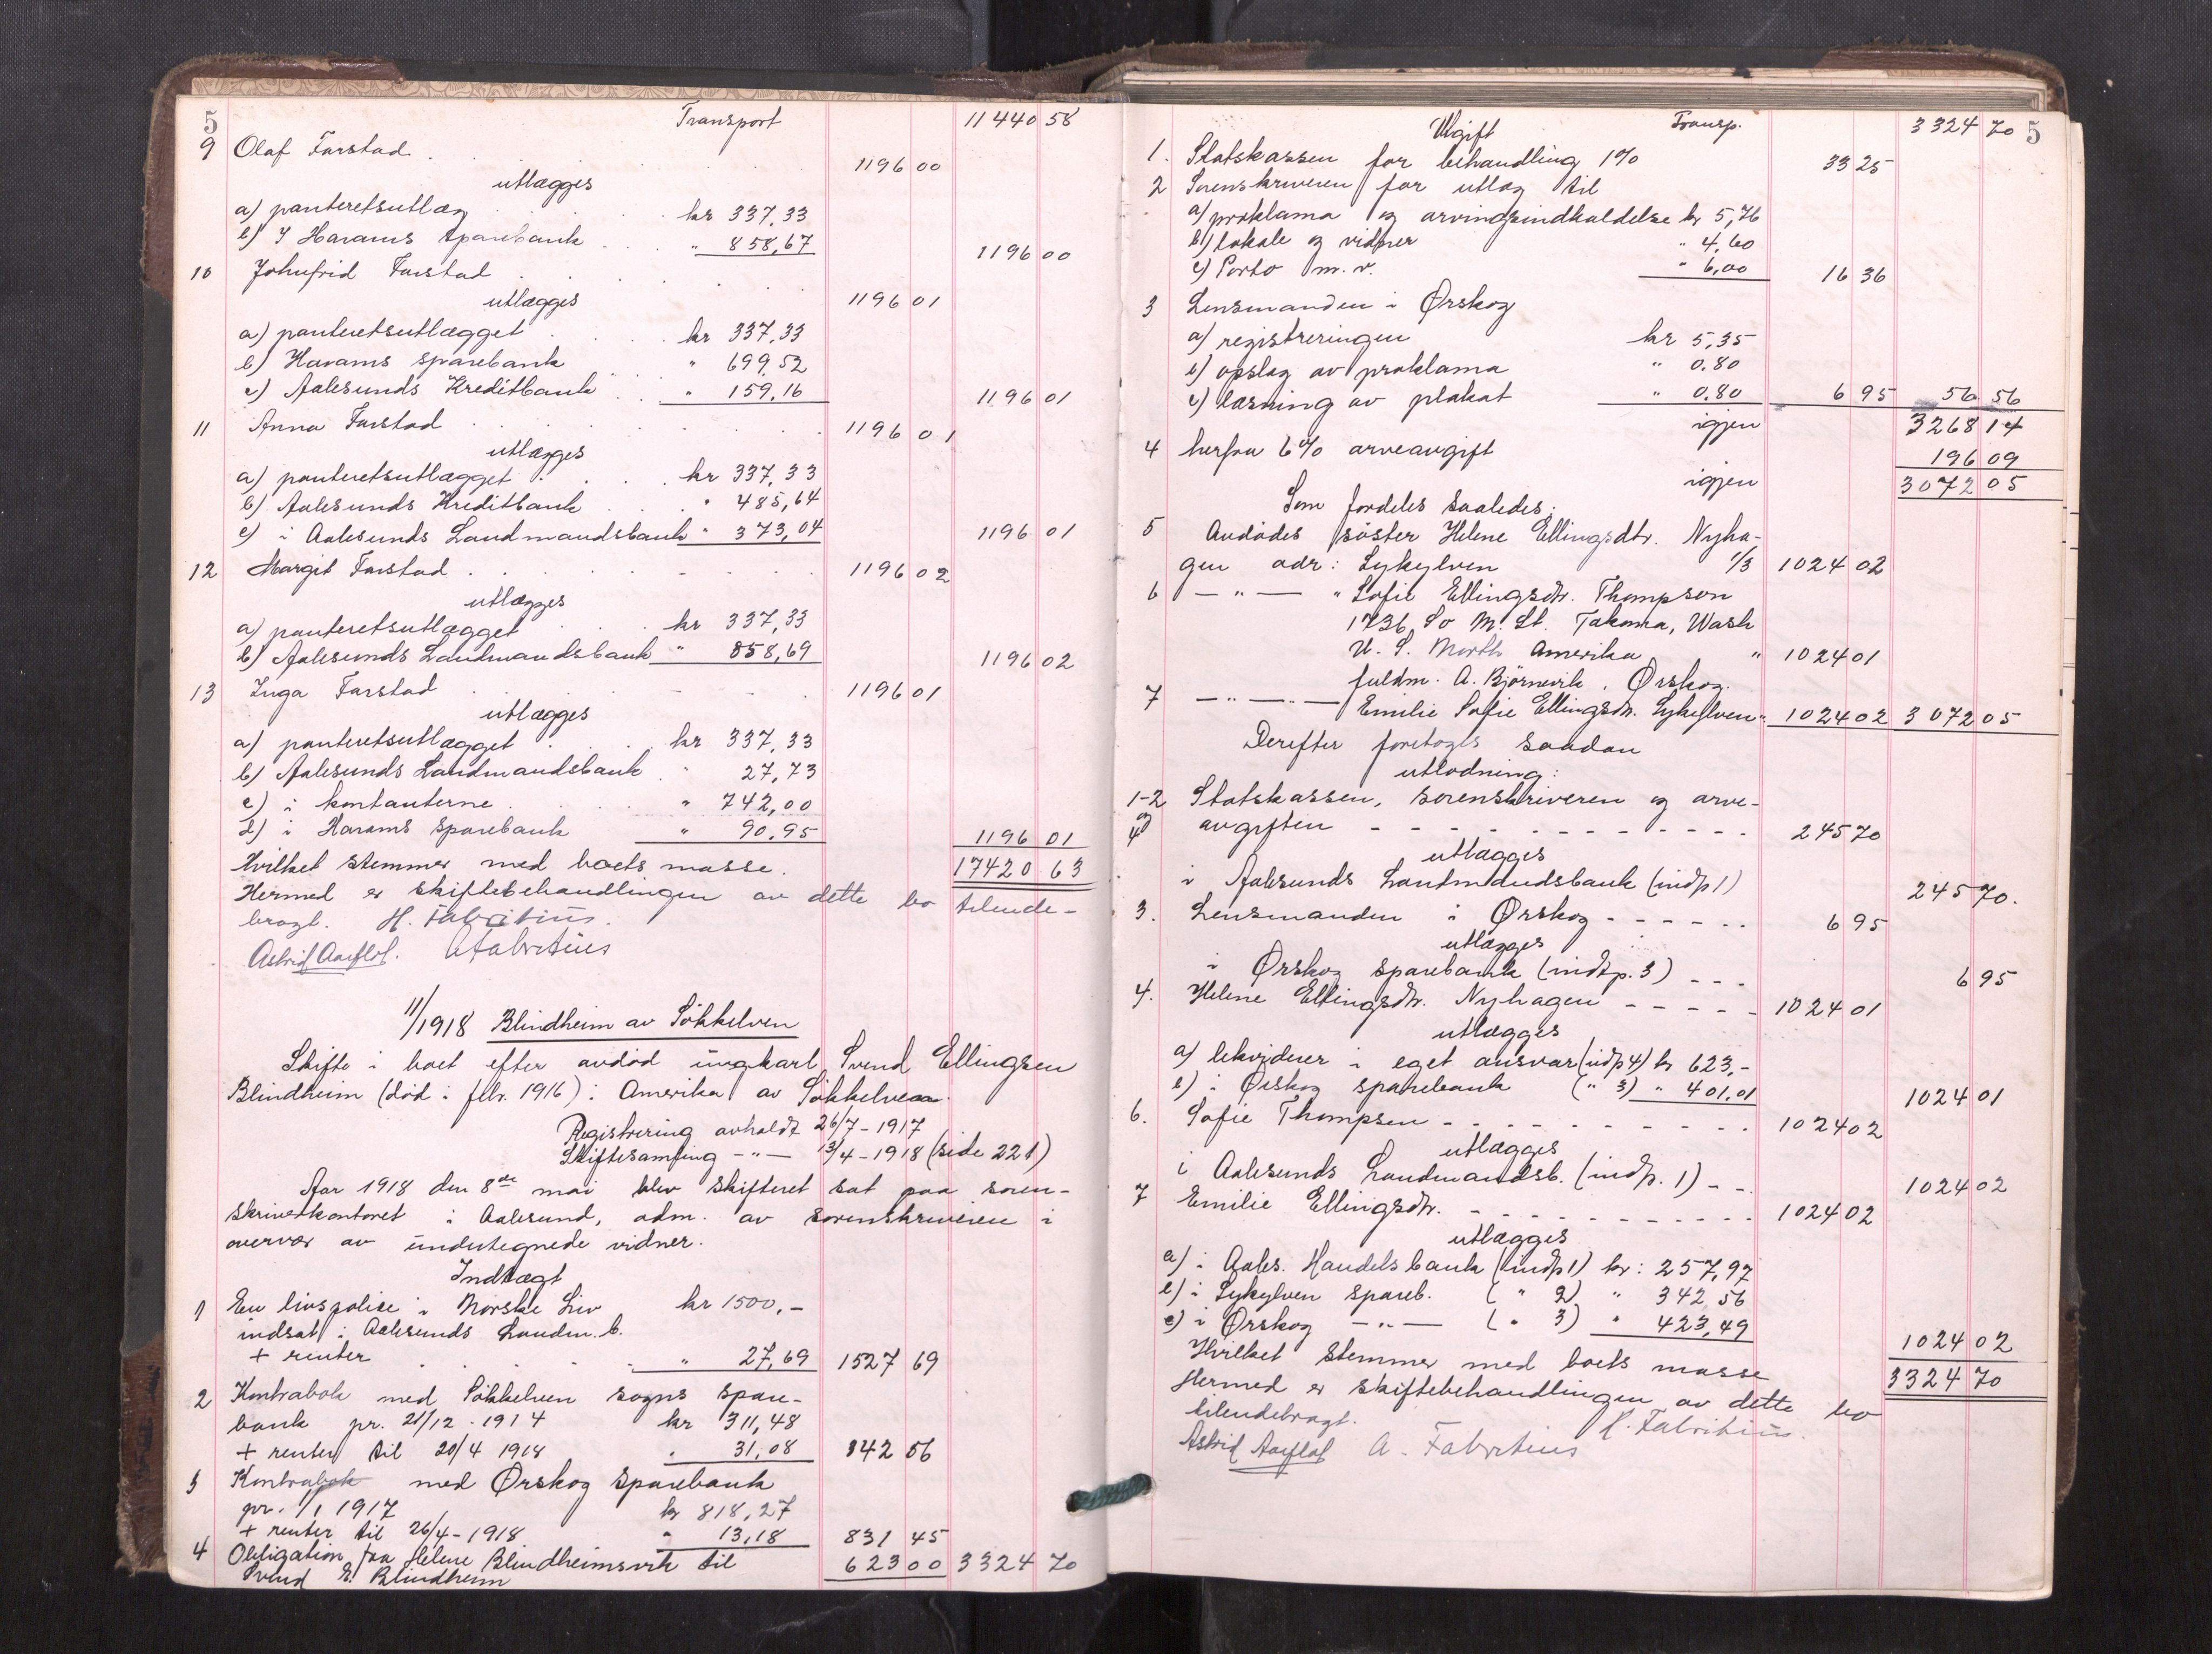 5 Transport 11440 58
9 Olaf Farstad . . . 1196 00
utlægges
a) panteretsutlæg . . . kr 337,33
b) I Harams Sparebank . . . " 858,67 1196 00
10 Johnfrid Farstad . . . 1196 01
utlægges
a) panteretsutlægget . . . kr 337,33
b) Harams sparebank " 699,52
c) Aalesunds Kreditbank . . " 159,16 1196 01
11 Anna Farstad . . . 1196 01
utlægges
a) panteretsutlægget . . . kr 337,33
b) Aalesunds Kreditbank . . " 485,64
c) i Aalesunds Landmandsbank " 373,04 1196 01
12 Margit Farstad . . . 1196 02
utlægges
a) panteretsutlægget . . kr 337,33
b) Aalesunds Landmandsbank " 858,69 1196 02
13 Inga Farstad . . . 1196 01
utlægges
a) panteretsutlægget . . . kr 337,33
b) Aalesunds Landmandsbank . " 27,73
c) i kontanterne . . . " 742,00
d) i Harams Sparebank " 90,95 1196 01
Hvilket stemmer med boets masse. 17420 63
Hermed er skiftebehandlingen av dette bo tilende-
bragt. H. Fabritius.
Astrid Aarflot. A Fabritius
11/1918 Blindheim av Søkkelven
Skifte i boet efter avdöd ungkarl Svend Ellingsen
Blindheim (död i febr. 1916) i Amerika av Søkkelven.
Registrering avholdt 26/7 - 1917
Skiftesamling - " - 13/4 - 1918 (side 221)
Aar 1918 den 8de mai blev skifteret sat paa soren-
skriverkontoret i Aalesund, adm. av sorenskriveren i
overvær av undertegnede vidner.
Indtægt
1 En livspolice i Norske Liv kr 1500,-
indsat i Aalesunds Landm. b.
+ renter . . . " 27,69 1527 69
2 Kontrabok med Søkkelven sogns spare-
bank pr. 21/12 - 1914 kr 311,48
+ renter til 20/4 1918 " 31,08 342 56
3 Kontrabok med Ørskog Sparebank
pr. 1/1 1917 kr 818,27
+ renter til 26/4 - 1918 " 13,18 831 45
4 Obligation fra Helene Blindheimsvik til 623 00 3324 70
Svend E. Blindheim
Utgift Transp. 3324 70 5
1. Statskassen for behandling 1% 33 25
2 Sorenskriveren for utlæg til
a) proklama og arvingsindkaldelse kr 5,76
b) lokale og vidner " 4,60
c) Porto m. v. " 6,00 16 36
3 Lensmanden i Ørskog
a) registreringen kr 5,35
b) opslag av proklama " 0.80
c) læsning av plakat " 0.80 6 95 56 56
igjen 3268 14
4 herfra 6% arveavgift 196 09
igjen 3072 05
Som fordeles saaledes:
5 Avdödes söster Helene Ellingsdtr. Nyha-
gen adr: Sykylven 1/3 1024 02
6 - " - " Sofie Ellingsdtr. Thompson
1736 So M. St. Takoma, Wash
U. S. North Amerika " 1024 01
fuldm. A. Björnevik, Ørskog.
7 - " - " - Emilie Sofie Ellingsdtr. Sykylven " 1024 02 3072 05
Derefter foretages saadan
utlodning:
1-2 Statskassen, sorenskriveren og arve-
og 4 avgiften - - - 245 70
utlægges
i Aalesunds Landmandsbank (indp 1) 245 70.
3. Lensmanden i Ørskog - - - 6 95
utlægges
i Ørskog sparebank (indtp. 3) - - - 6 95
4. Helene Ellingsdtr. Nyhagen - - - 1024 01
utlægges
a) bekvidner i eget ansvar (indp 4) kr 623,-
b) i Ørskog sparebank ( " 3) " 401,01 1024 01
6. Sofie Thompsen - - - 1024 02
utlægges
i Aalesunds Landmandsb. (indp. 1) - - 1024 02
7 Emilie Ellingsdtr. - - - 1024 02
utlægges
a) i Aales. Handelsbank (indp 1) kr: 257,97
b) i Sykylven spareb. ( " 2) " 342,56
c) i Ørskog - " - ( " 3) " 423,49 1024 02
Hvilket stemmer med boets masse 3324 70
Hermed er skiftebehandlingen av dette bo
tilendebragt. H. Fabritius.
Astrid Aarflot A. Fabritius